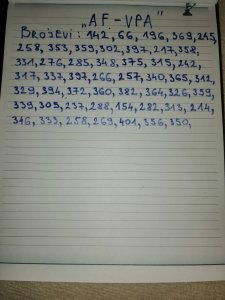 "AF-VPA"
BROJEVI: 142, 66, 196, 369, 245,
258, 353, 359, 302, 397, 217, 358,
331, 276, 285, 348, 375, 319, 242,
317, 337, 397, 266, 257, 340, 365, 312,
329, 394, 372, 360, 382, 364, 326, 359,
339, 305, 237, 288, 154, 282, 313, 214,
316, 333, 258, 269, 401, 356, 350,